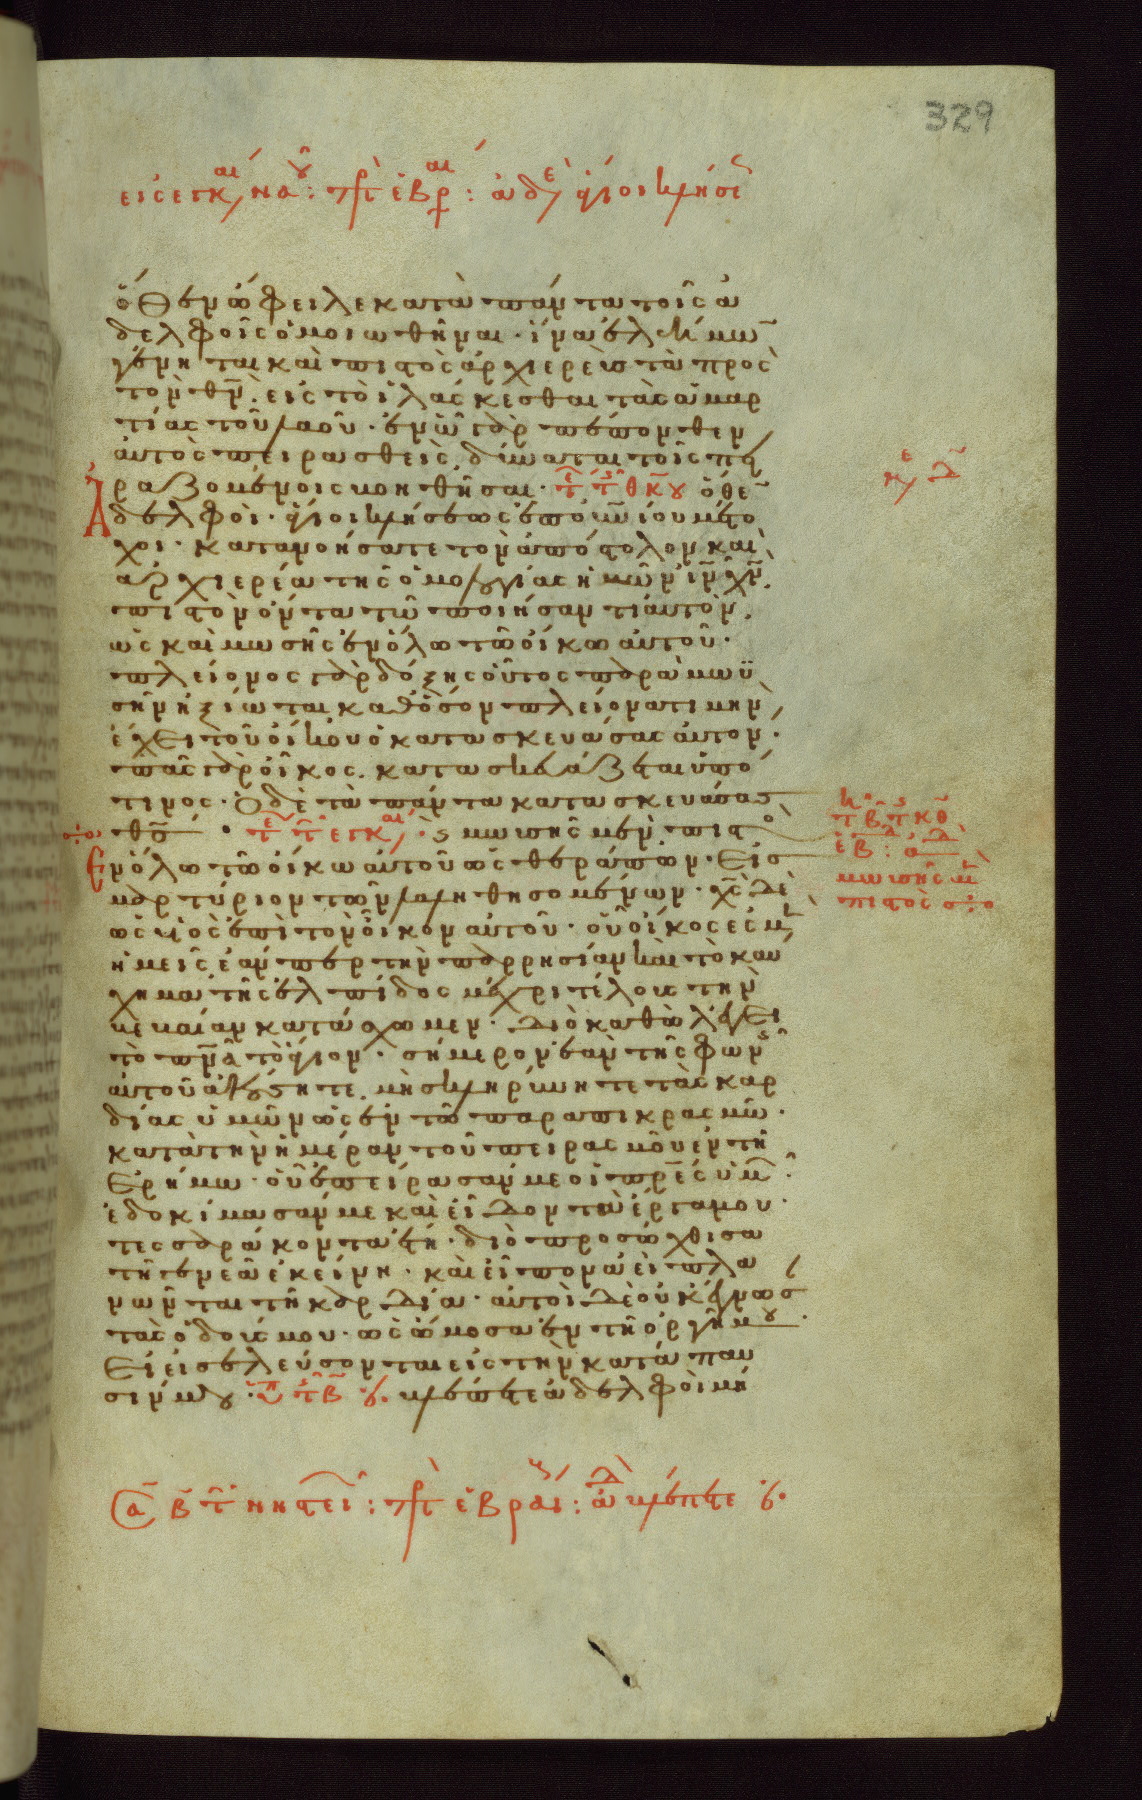 329
ὅθεν ὤφειλε κατὰ πάντα τοῖς ἀ
δελφοῖς ὁμοιωθῆναι · ἵνα ἐλεήμων
γένηται καὶ πιστὸς ἀρχιερεὺς τὰ πρὸς
τὸν θν̄ · εἰς τὸ ἱλάσκεσθαι τὰς ἁμαρ
τίας τοῦ λαοῦ · ἐν ᾧ γὰρ πέπονθεν
αὐτὸς πειρασθεὶς, δύναται τοῖς πει
ραζομένοις βοηθῆσαι · ὅθεν
ἀδελφοὶ · ἅγιοι κλήσεως ἐπουνίου μέτο
χοι · κατανοήσατε τὸν ἀπόστολον καὶ
ἀρχιερέα τῆς ὁμολογίας ἡμῶν ιν̄ χν̄,
πιστὸν ὄντα τῶ ποιήσαντι αὐτὸν,
ὡς καὶ μωσῆς ἐν ὅλω τῶ οἴκω αὐτοῦ ·
πλείονος γὰρ δόξης οὗτος παρὰ μωϋ
σῆν ἠξίωται καθ' ὅσον πλείονα τιμὴν
ἔχει τοῦ οἴκου ὁ κατασκευάσας αὐτόν ·
πᾶς γὰρ οἶκος κατασκευάζεται ὑπό
τινος · ὁ δὲ τὰ πάντα κατασκευάσας
θς̄ · μωισῆς μὲν πιστὸς
ἐν ὅλω τῶ οἴκω αὐτοῦ ὡς θεράπων · εἰς
μαρτύριον τῶν λαληθησομένων · χς̄ δὲ
ὡς υἱὸς ἐπὶ τὸν οἶκον αὐτοῦ · οὗ οἶκός ἐσμεν
ἡμεῖς ἐάνπερ τὴν παρρησίαν καὶ τὸ καύ
χημα τῆς ἐλπίδος μέχρι τέλους
βεβαίαν κατάσχωμεν · διὸ καθὼς λέγει
τὸ πνᾱ τὸ ἅγιον · σήμερον ἐὰν τῆς φωνῆς
αὐτοῦ ἀκούσητε, μὴ σκληρύνητε τὰς καρ
δίας ὑμῶν ὡς ἐν τῶ παραπικρασμῶ ·
κατὰ τὴν ἡμέραν τοῦ πειρασμοῦ ἐν τῆ
ἐρήμω · οὗ ἐπείρασάν με οἱ πρ̄ες ὑμῶν ·
ἐδοκίμασάν με καὶ εἶδον τὰ ἔργα μου ·
τεσσαράκοντα ἔτη · διὸ προσώχθισα
τῆ γενεᾶ ἐκείνη · καὶ εἶπον ἀεὶ πλα
νῶνται τῆ καρδία · αὐτοὶ δὲ οὐκ ἔγνωσαν
τὰς ὁδούς μου · ὡς ὤμοσα ἐν τῆ ὀργῆ μου ·
εἰ εἰσελεύσονται εἰς τὴν κατάπαυ
σίν μου · βλέπετε ἀδελφοὶ μή
μωισῆς μὲν
πιστὸς